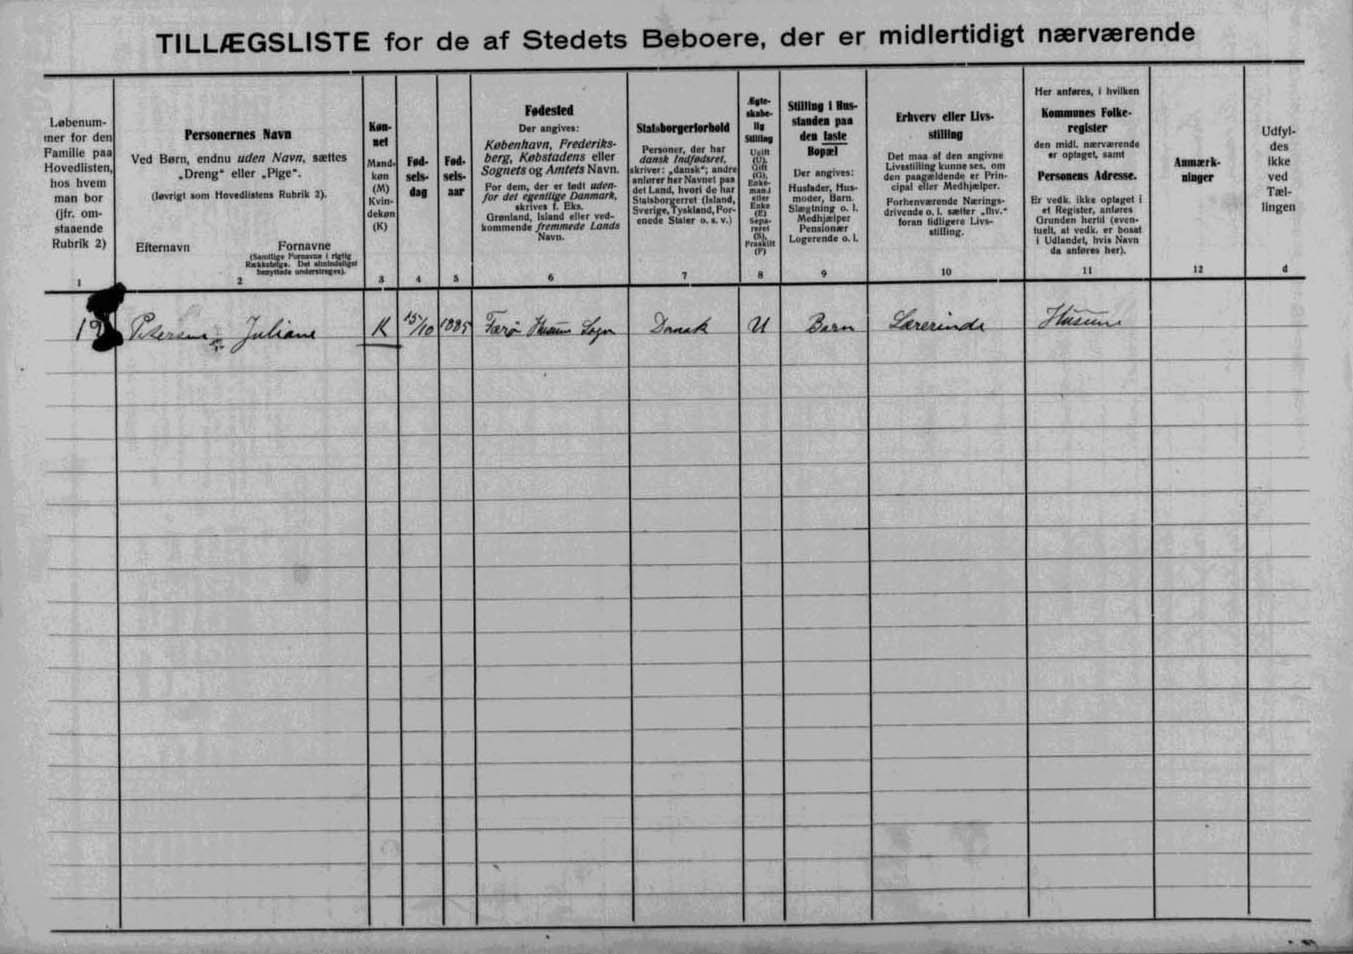 TILLÆGSLISTE for de af Stedets Beboere, der er midlertidigt nærværende
Løbenum-
mer for den
Familie paa
Hovedlisten,
hos hvem
man bor
(jfr. om-
staaende
Rubrik 2)
1
Personernes Navn
Ved Børn, endnu uden Navn, sættes
„Dreng“ eller „Pige“.
(Iøvrigt som Hovedlistens Rubrik 2).
Efternavn
Fornavne
(Samtlige Fornavne i rigtig
Rækkefølge. Det almindeligst
benyttede understreges).
2
Køn-
net
Mand-
køn
(M)
Kvin-
dekøn
(K)
3
Fød-
sels-
dag
4
Fød-
sels-
aar
5
Fødested
Der angives:
København, Frederiks-
berg, Købstadens eller
Sognets og Amtets Navn.
For dem, der er født uden-
for det egentlige Danmark,
skrives f. Eks.
Grønland, Island eller ved-
kommende fremmede Lands
Navn.
6
Statsborgerforhold
Personer, der har
dansk Indfødsret,
skriver: „dansk“; andre
anfører her Navnet paa
det Land, hvori de har
Statsborgerret (Island,
Sverige, Tyskland, For-
enede Stater o. s. v.)
7
Ægte-
skabe-
lig
Stilling
Ugift
(U),
Gift
(G),
Enke-
mand
eller
Enke
(E)
Sepa-
reret
(S),
Fraskilt
(F)
8
Stilling i Hus-
standen paa
den faste
Bopæl
Der angives:
Husfader, Hus-
moder, Barn.
Slægtning o. l.
Medhjælper
Pensionær
Logerende o. l.
9
Erhverv eller Livs-
stilling
Det maa af den angivne
Livsstilling kunne ses, om
den paagældende er Prin-
cipal eller Medhjælper.
Forhenværende Nærings-
drivende o. l. sætter „fhv.“
foran tidligere Livs-
stilling.
10
Her anføres, i hvilken
Kommunes Folke-
register
den midl. nærværende
er optaget, samt
Personens Adresse.
Er vedk. ikke optaget i
et Register, anføres
Grunden hertil (even-
tuelt, at vedk. er bosat
i Udlandet, hvis Navn
da anføres her).
11
Anmærk-
ninger
12
Udfyl-
des
ikke
ved
Tæl-
lingen
d
Petersen Juliane K 15/10 1885 Færø Husum Sogn Dansk U Barn Lærerinde Husum